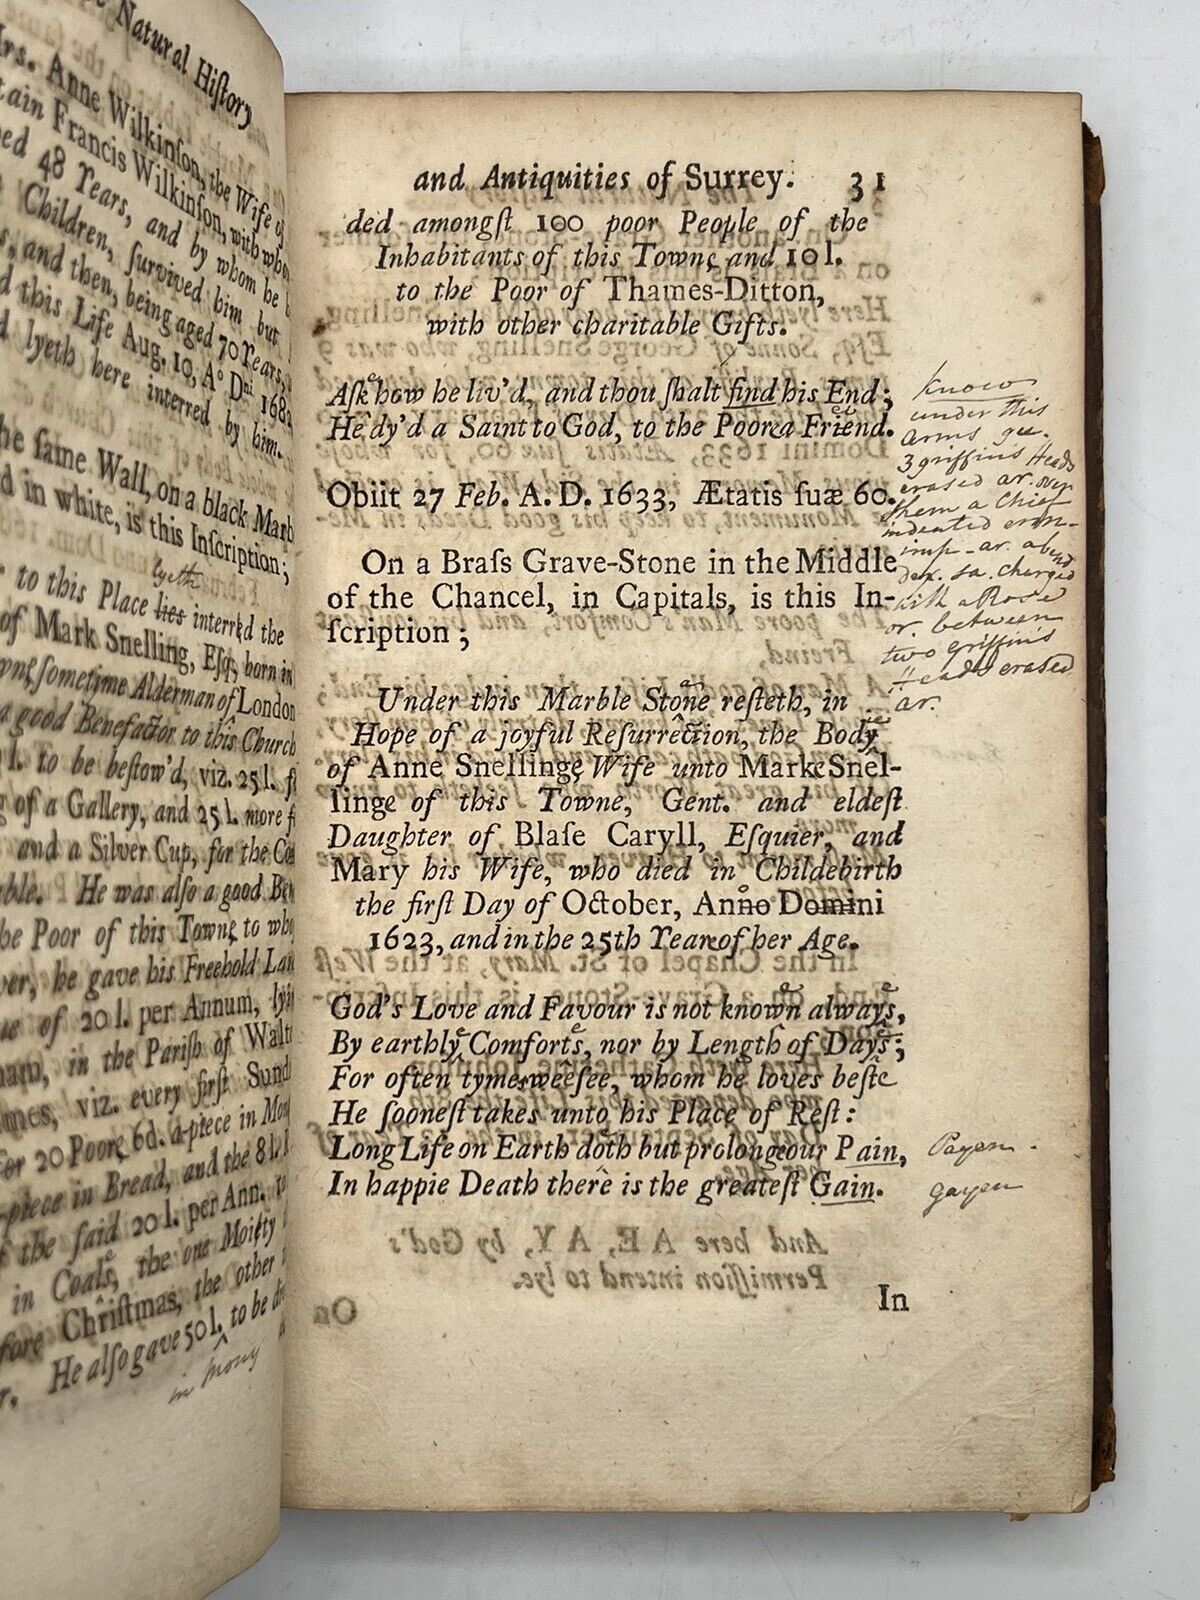 Natural Hiſtory
Mrs. Anne Wilkinſon, the Wife of
Francis Wilkinſon, with
48 Years, and by whom he
Children, ſurvived him but
and then, being aged 70 Years,
this Life Aug. 10, A° Dni 168
lyeth here interred by him.
ſame Wall, on a black Marb
in white, is this Inſcription;
lyeth
to this Place lies interred the
of Mark Snelling, Eſq; born in
ſometime Alderman of London
a good Benefactor to this Church
l. to be beſtow'd, viz. 25 l.
of a Gallery, and 25 l. more
and a Silver Cup, for the
He was also a good
the Poor of this Towne, to
he gave his Freehold
of 20 l. per Annum,
in the Pariſh of
viz. every firſt
For 20 Poore, 6d. a-piece in
-piece in Bread, and the 8 l.
the ſaid 20 l. per Ann.
in Coals, the one Moiety
Chriſtmas, the other
He alſo gave 50 l. to be
in mony
and Antiquities of Surrey. 31
ded amongſt 100 poor People of the
Inhabitants of this Towne, and 10 l.
to the Poor of Thames-Ditton,
with other charitable Gifts.
Aſke how he liv'd, and thou ſhalt find his End;
He dy'd a Saint to God, to the Poore a Friend.
know
under this
arms gu.
3 griffins Heads
erased ar. over
them a Chief
indented ermn-
imp. ar. a bend
dex. sa. charged
with a Rose
or. between
two griffins
Heads erased
ar.
Obiit 27 Feb. A. D. 1633, Ætatis ſuæ 60.
On a Braſs Grave-Stone in the Middle
of the Chancel, in Capitals, is this In-
ſcription;
Under this Marble Stone reſteth, in
Hope of a joyful Reſurrection, the Body
of Anne Snellinge, Wife unto Marke Snel-
linge of this Towne, Gent. and eldeſt
Daughter of Blaſe Caryll, Eſquier, and
Mary his Wife, who died in Childebirth
the firſt Day of October, Anno Domini
1623, and in the 25th Yeare of her Age.
God's Love and Favour is not known always,
By earthly Comforts, nor by Length of Days;
For often tymes wee ſee, whom he loves beſte
He ſooneſt takes unto his Place of Reſt:
Long Life on Earth doth but prolonge our Pain,
In happie Death there is the greateſt Gain.
Payen
gayen
In